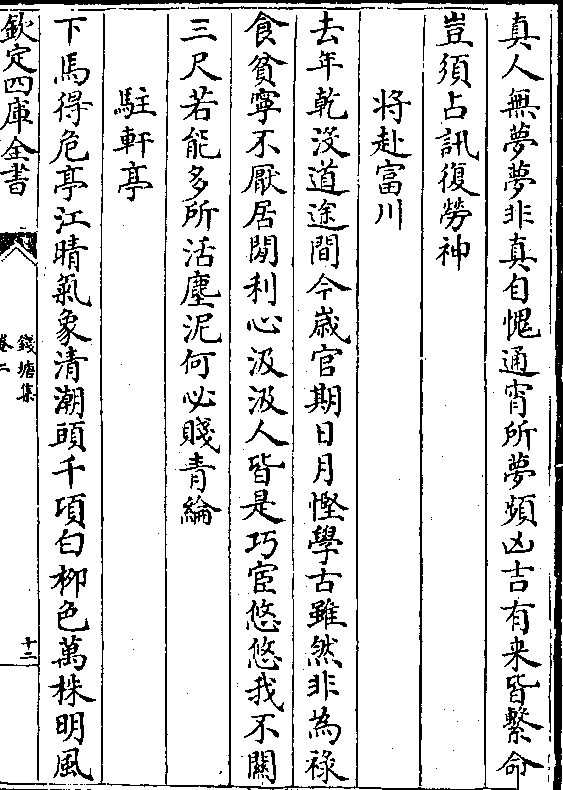 真人無夢夢非真自愧通宵所夢頻凶吉有来皆繫命
豈須占訊復勞神
将赴富川
去年乾没道途間今嵗官期日月慳學古雖然非為禄
食貧寧不厭居閒利心汲汲人皆是巧宦悠悠我不關
三尺若能多所活塵泥何必賤青綸
駐軒亭
下馬得危亭江晴氣象清潮頭千頃白栁色萬株明風
欽定四庫全書
錢塘集
卷二
十二